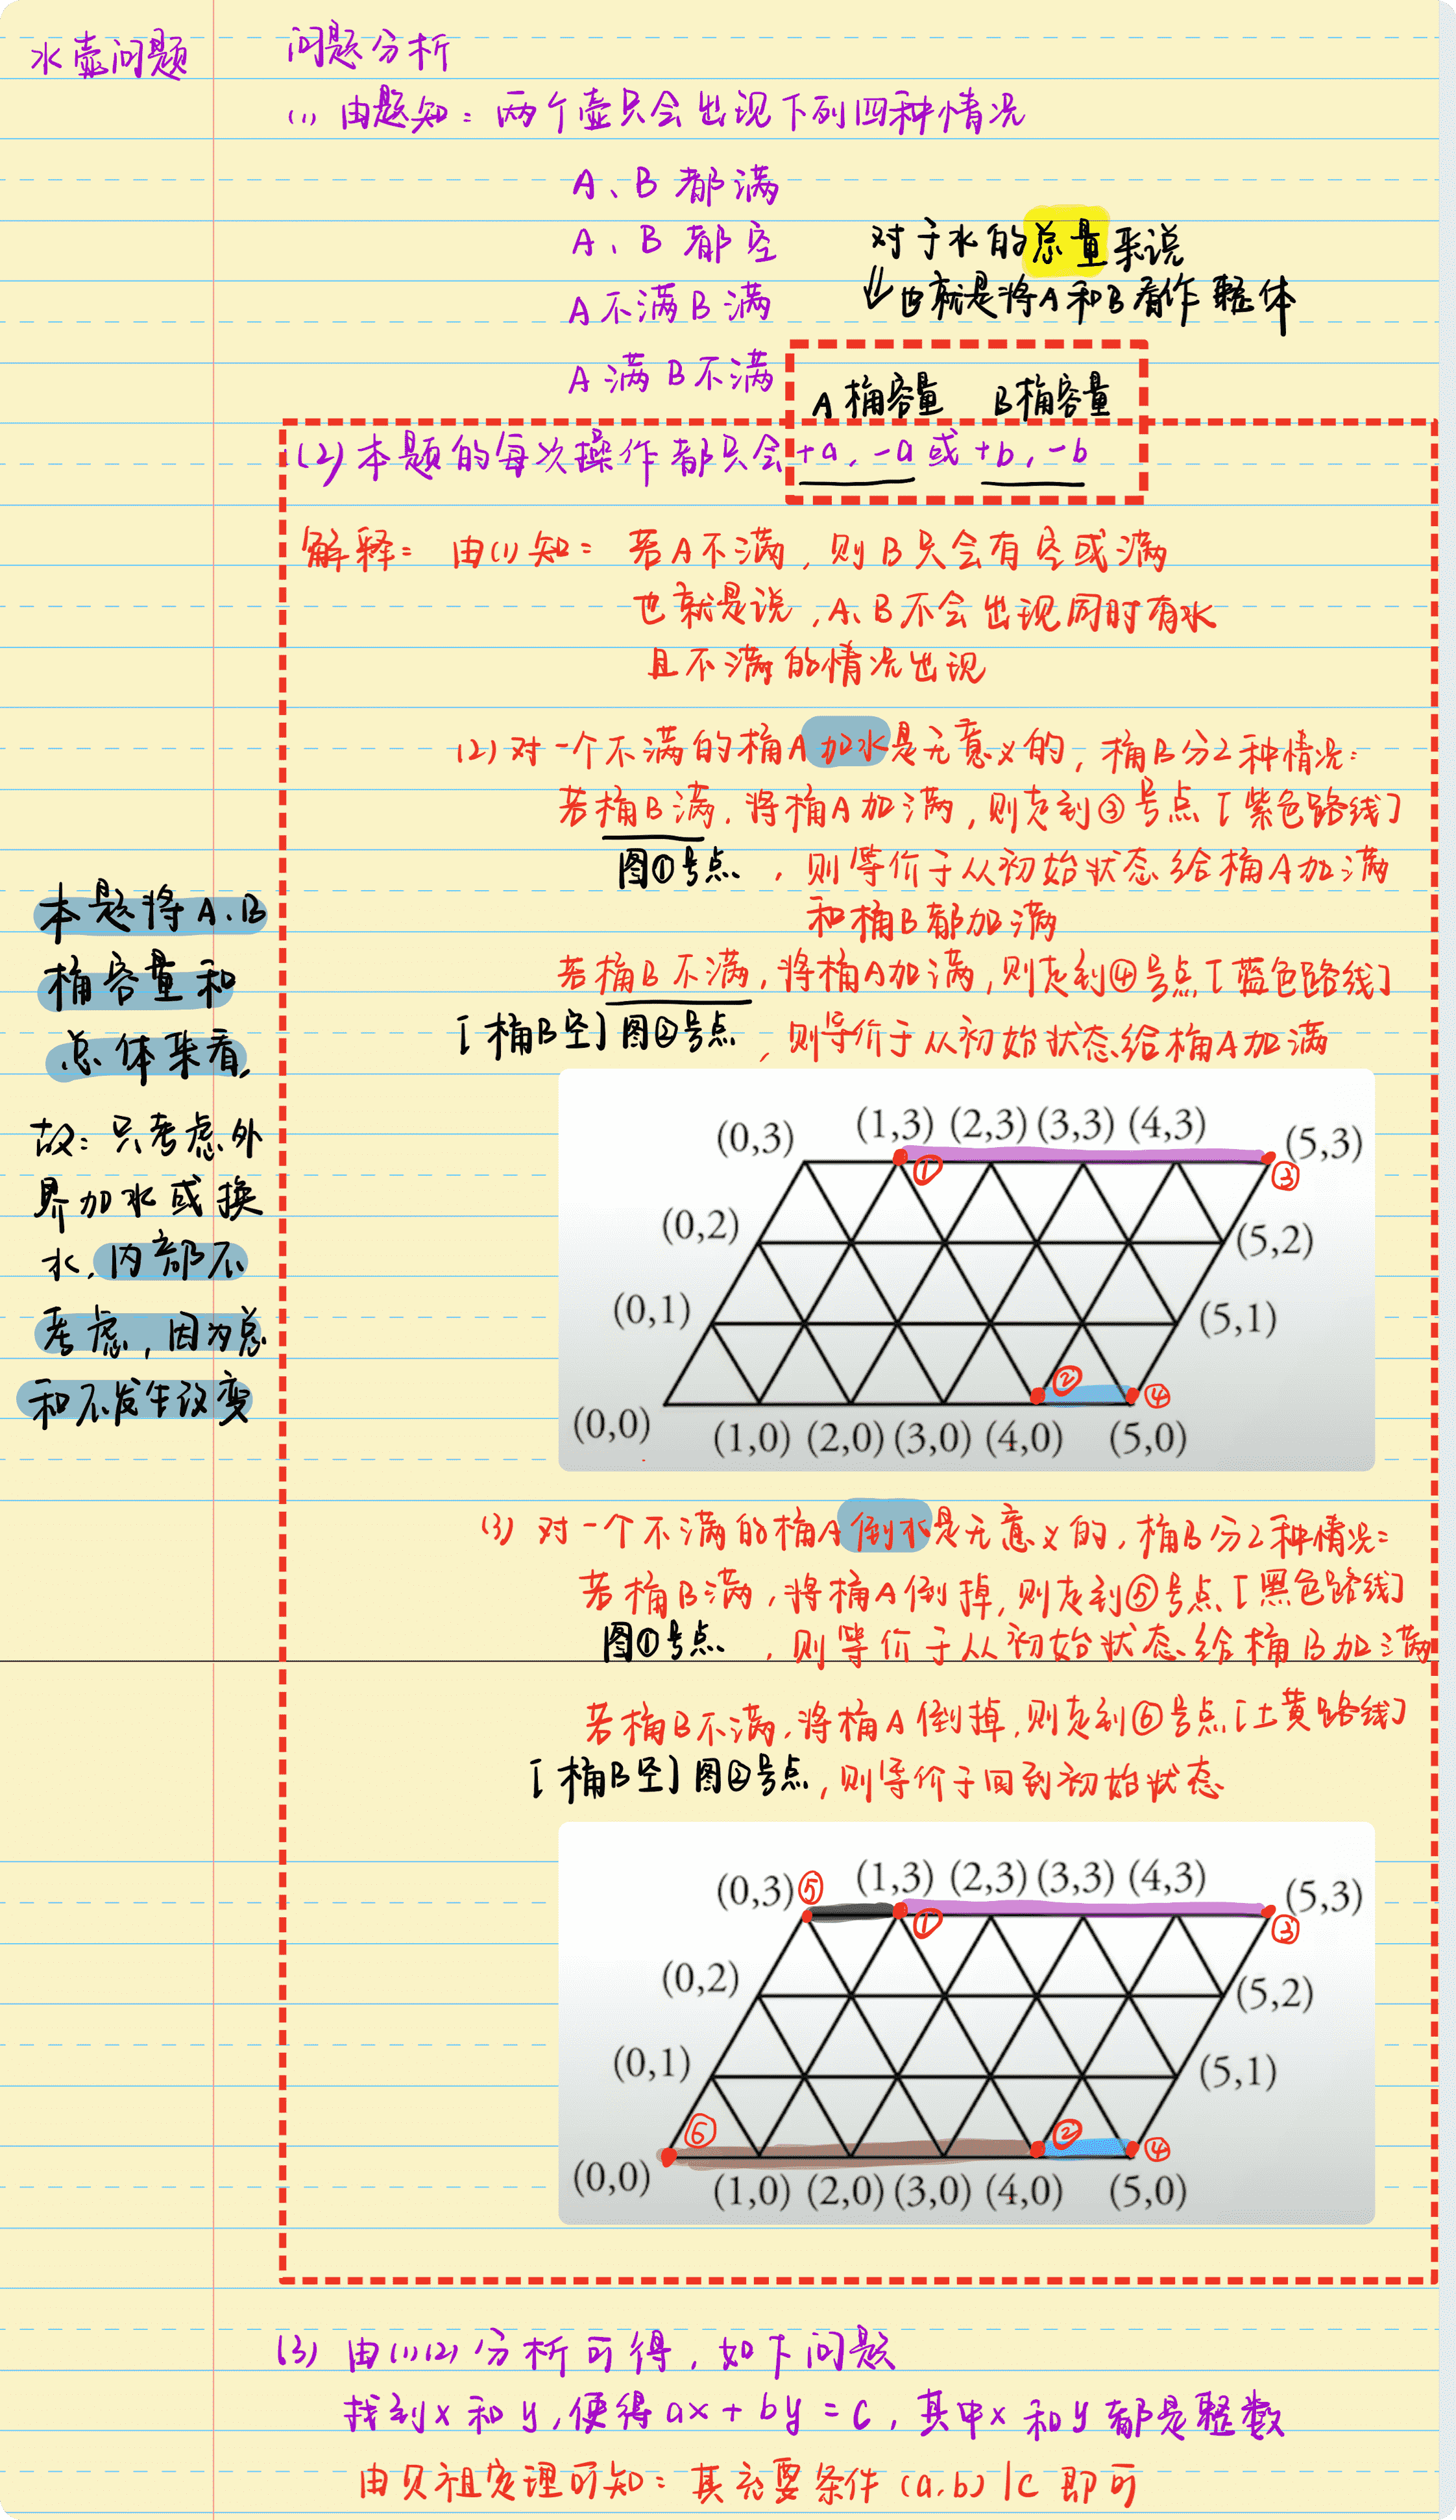 水壶问题
问题分析
(1) 由题知：两个壶只会出现下列四种情况
A、B 都满
A、B 都空
A 不满 B 满
A 满 B 不满
对于水的总量来说
⇓也就是将A和B看作整体
A桶容量 B桶容量
(2)本题的每次操作都只会+a，-a或+b，-b
解释：由(1)知：若A不满，则B只会有空或满
也就是说，A、B不会出现同时有水
且不满的情况出现
(2)对一个不满的桶A加水是无意义的，桶B分2种情况：
若桶B满，将桶A加满，则走到③号点[紫色路线]
图①号点，则等价于从初始状态给桶A加满
和桶B都加满
若桶B不满，将桶A加满，则走到④号点[蓝色路线]
[桶B空]图②号点，则等价于从初始状态给桶A加满
本题将A、B
桶容量和
总体来看，
故：只考虑外
界加水或换
水，内部不
考虑，因为总
和不发生改变
(0,3) (1,3) (2,3) (3,3) (4,3) (5,3)
① ③
(0,2) (5,2)
(0,1) (5,1)
② ④
(0,0) (1,0) (2,0) (3,0) (4,0) (5,0)
(3) 对一个不满的桶A倒水是无意义的，桶B分2种情况：
若桶B满，将桶A倒掉，则走到⑤号点[黑色路线]
图①号点，则等价于从初始状态给桶B加满
若桶B不满，将桶A倒掉，则走到⑥号点[土黄路线]
[桶B空]图②号点，则等价于回到初始状态
(0,3) ⑤ (1,3) (2,3) (3,3) (4,3) (5,3)
① ③
(0,2) (5,2)
(0,1) (5,1)
⑥ ② ④
(0,0) (1,0) (2,0) (3,0) (4,0) (5,0)
(3) 由(1)(2)分析可得，如下问题
找到x和y，使得ax+by=c，其中x和y都是整数
由贝祖定理可知：其充要条件(a,b)|c即可